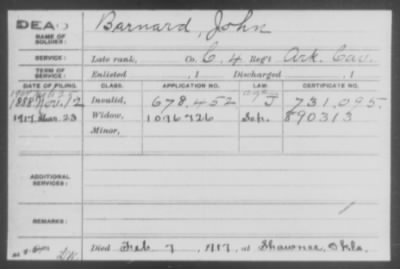 DEAD
Barnard, John
NAME OF
SOLDIER:
SERVICE:
Late rank, Co. C, 4 Reg't Ark. Cav.
TERM OF
SERVICE:
Enlisted , 1 Discharged , 1
DATE OF FILING.
CLASS.
APPLICATION NO.
LAW.
CERTIFICATE NO.
1888 Nov. 12 Invalid, 678.452 J 731.095.
1917 Mar. 23 Widow, 1096726 Sep. 890313
Minor,
ADDITIONAL
SERVICES:
REMARKS:
Died Feb 7, 1917, at Shawnee, Okla.